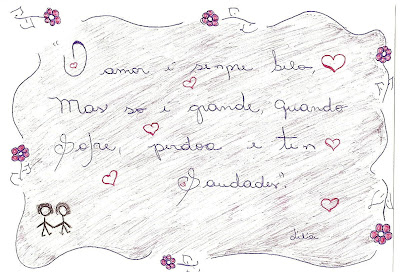 "O amor é sempre belo,
Mas só é grande, quando
Sofre, perdoa e tem
Saudades".